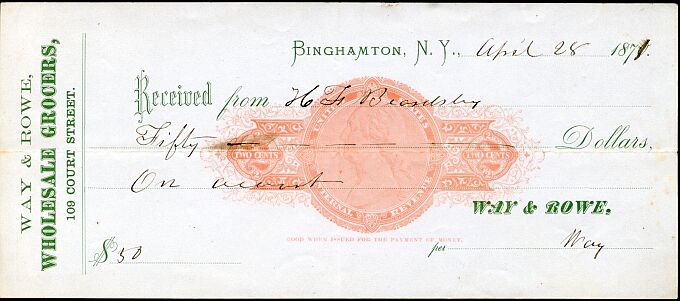 WAY & ROWE,
WHOLESALE GROCERS,
109 COURT STREET.
BINGHAMTON, N. Y., April 28 1871.
Received from H F Beardsley
Fifty Dollars,
UNITED STATES
TWO CENTS TWO CENTS
INTERNAL REVENUE
On
WAY & ROWE,
GOOD WHEN ISSUED FOR THE PAYMENT OF MONEY.
$50 per Way